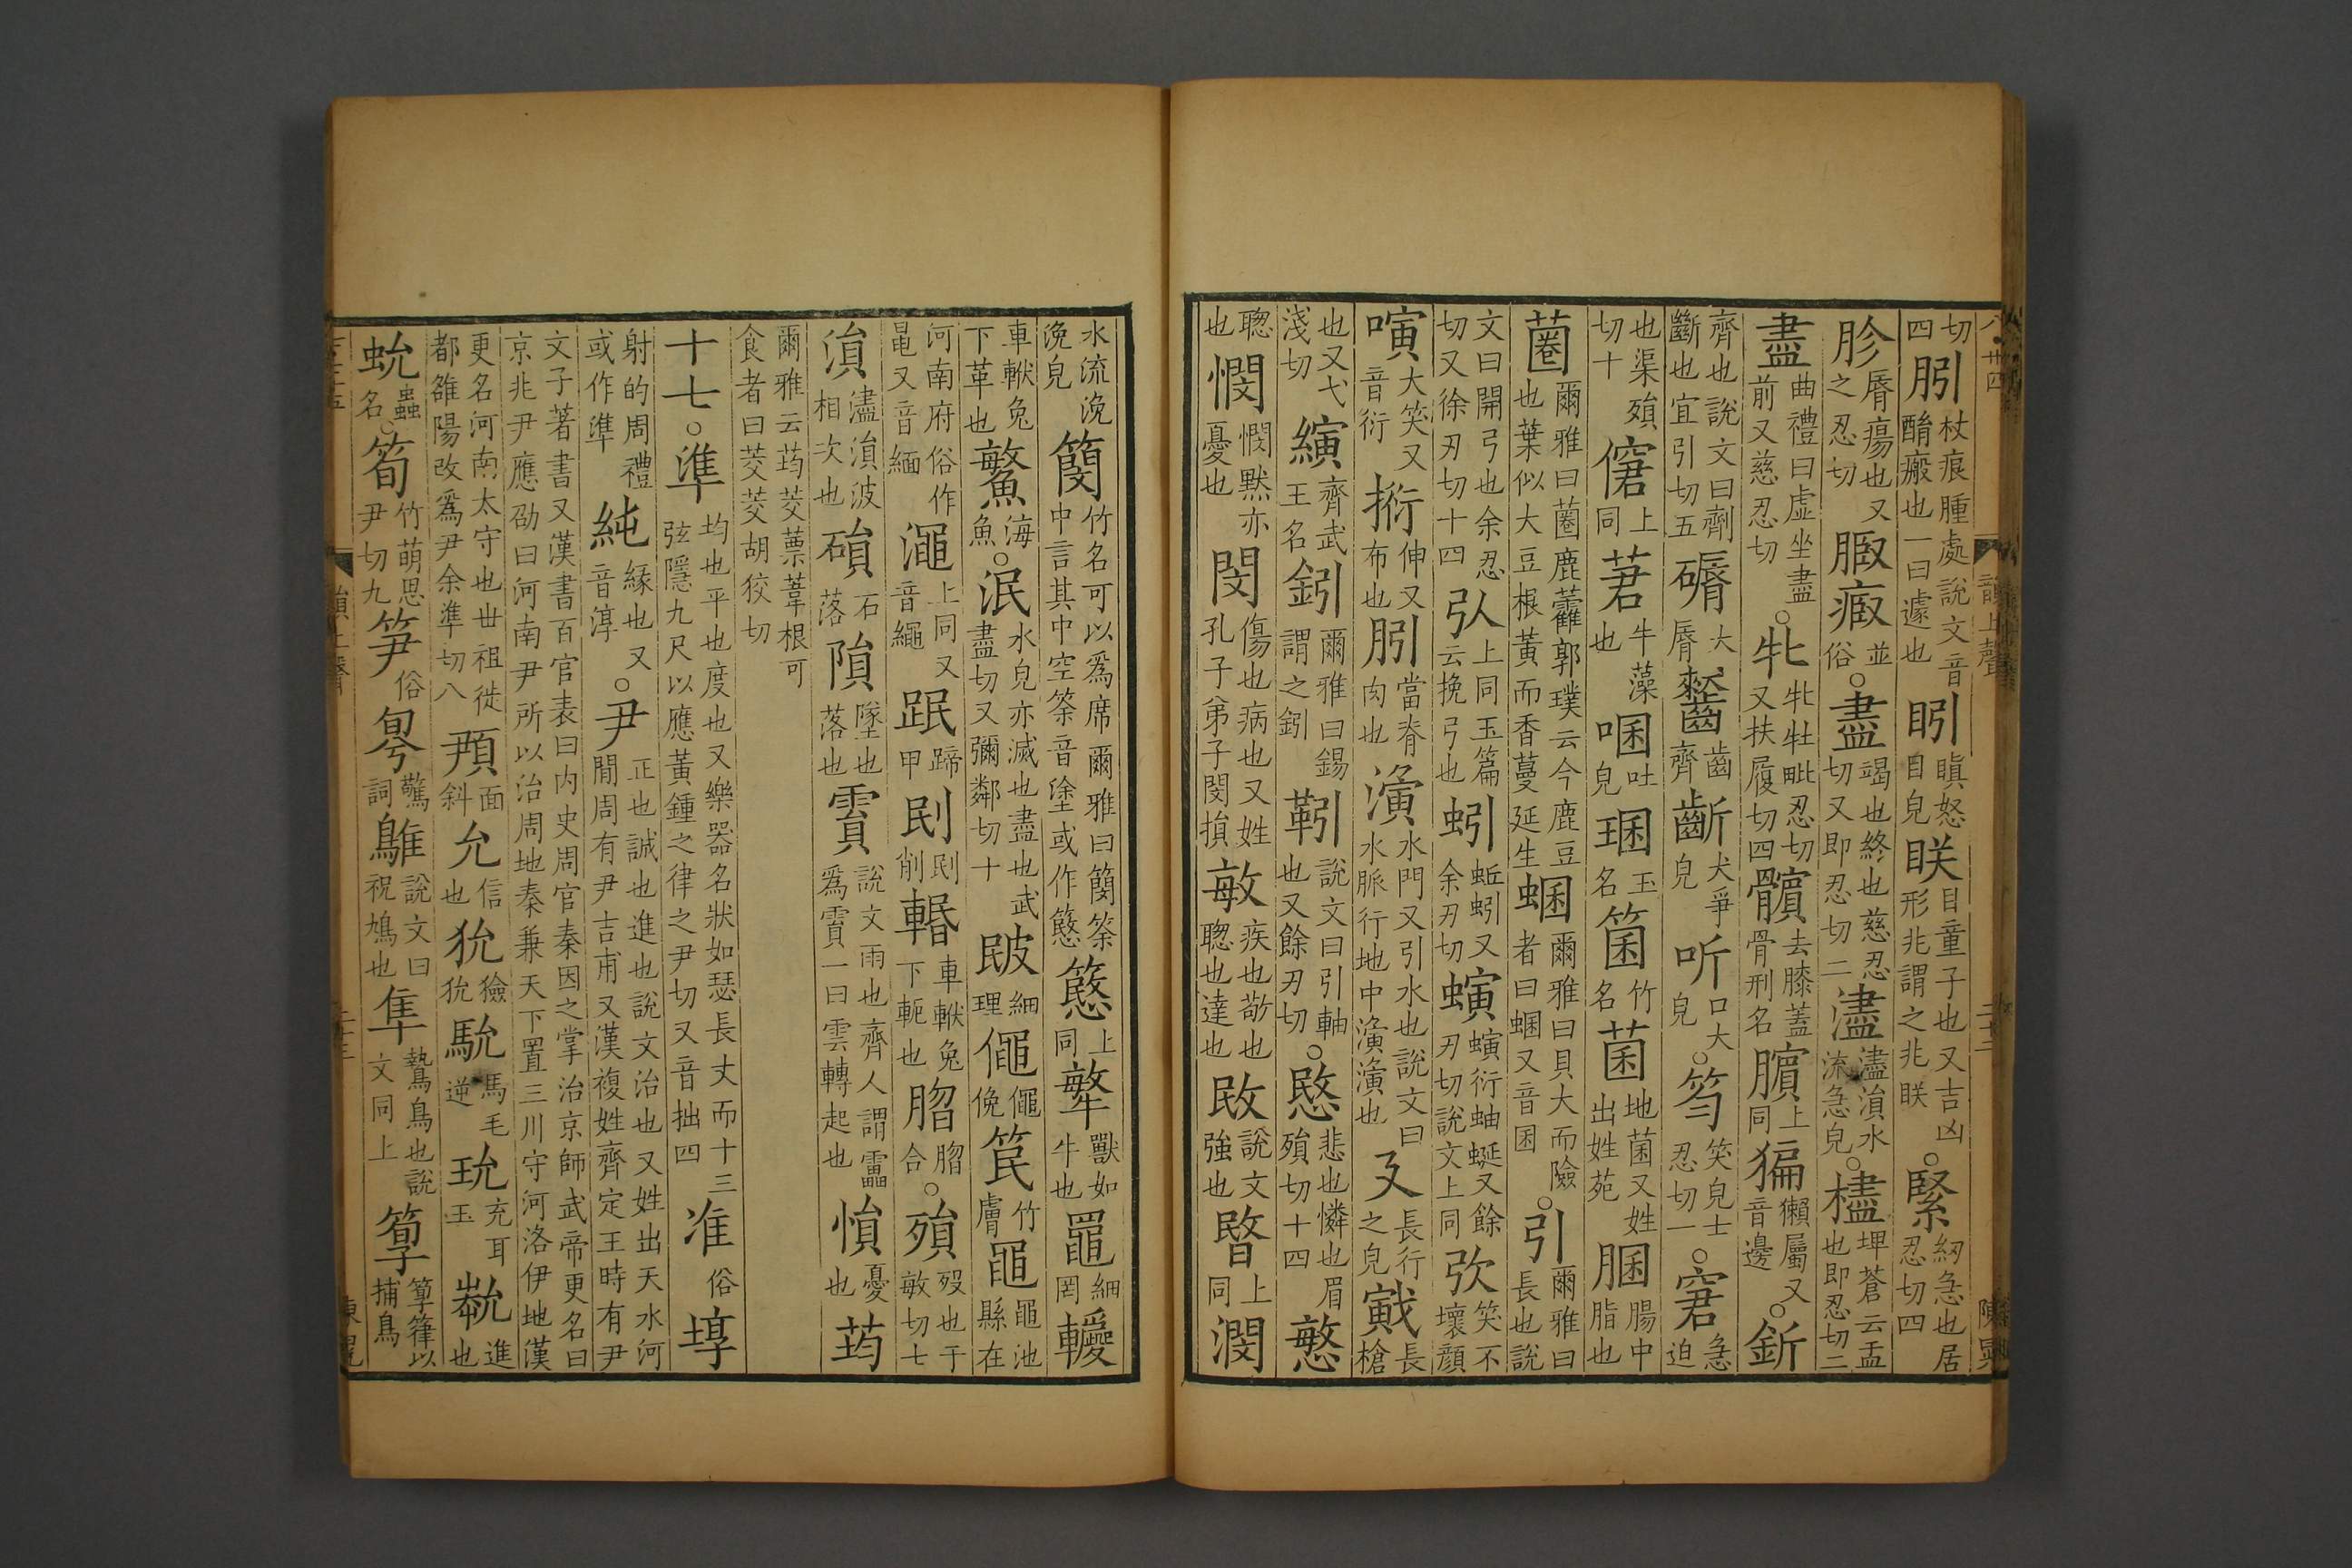 切四㬐杖痕腫處說文音酳瘢也一曰遽也眏瞋怒目皃眹目童子也又吉凶形兆謂之兆眹○緊紉急也居忍切四
胗脣瘍也又之忍切𦞕瘕並俗○盡竭也終也慈忍切又即忍切二濜濜湏水流急皃○榼埤蒼云盂也即忍切二
盡曲禮曰虛坐盡前又慈忍切○牝牝牡毗忍切又扶履切四髕去膝蓋骨刑名臏上同猵獺屬又音邊○釿
齊也說文曰劑斷也宜引切五磭大脣齒齊斷犬爭皃听口大皃○笉笑皃士忍切一○窘急迫
也渠殞切十僒上同莙牛藻也㖥吐皃珚玉名箘竹名菌地菌又姓出姓苑䐃腸中脂也
蔨爾雅曰蔨鹿藿郭璞云今鹿豆也葉似大豆根黃而香蔓延生蜠爾雅曰貝大而險者曰蜠又音囷○引爾雅曰長也說
文曰開弓也余忍切又徐刃切十四㧈上同玉篇云挽弓也蚓蚯蚓又余刃切螾螾衍蚰蜒又餘刃切說文上同弞笑不壞顏
也又弋淺切縯齊武王名釖爾雅曰錫謂之鈏靷說文曰引軸也又餘刃切○愍悲也憐也眉殞切十四憋
聰也憫憫默亦憂也閔傷也病也又姓孔子弟子閔損敏疾也敬也聰也達也敃說文強也暋上同潤
水流浼浼皃簢竹名可以爲席爾雅曰簢筡中言其中空筡音塗或作簢上同㹈獸如牛也罠細罔轗
車軨兔下革也鰵海魚○泯水皃亦滅也盡也武盡切又彌鄰切十䟨細理僶僶俛笢竹膚黽黽池縣在
河南府俗作黽又音緬澠上同又音繩蹄甲刡刡削輴車軨兔下軛也脗脗合○殞歿也于敏切七
湏濜湏波相次也磒石落隕墜也落也霣說文雨也齊人謂靁爲霣一曰雲轉起也愪憂也荺
爾雅云荺茭蒚葦根可食者曰茭茭胡狡切
十七○準均也平也度也又樂器名狀如瑟長丈而十三弦隱九尺以應黃鍾之律之尹切又音拙四准俗埻
射的周禮或作準純緣也又音淳○尹正也誠也進也說文治也又姓出天水河閒周有尹吉甫又漢複姓齊定王時有尹
文子著書又漢書百官表曰内史周官秦因之掌治京師武帝更名曰京兆尹應劭曰河南尹所以治周地秦兼天下置三川守河洛伊地漢
更名河南太守也世祖徙都雒陽改爲尹余準切八頵面斜允信也狁獫狁馻馬毛逆玧充耳玉𡴞進也
蚢蟲名○筍竹萌思尹切九笋俗㝁驚詞鶽說文曰祝鳩也隼鷙鳥也說文同上箰箰篧以捕鳥